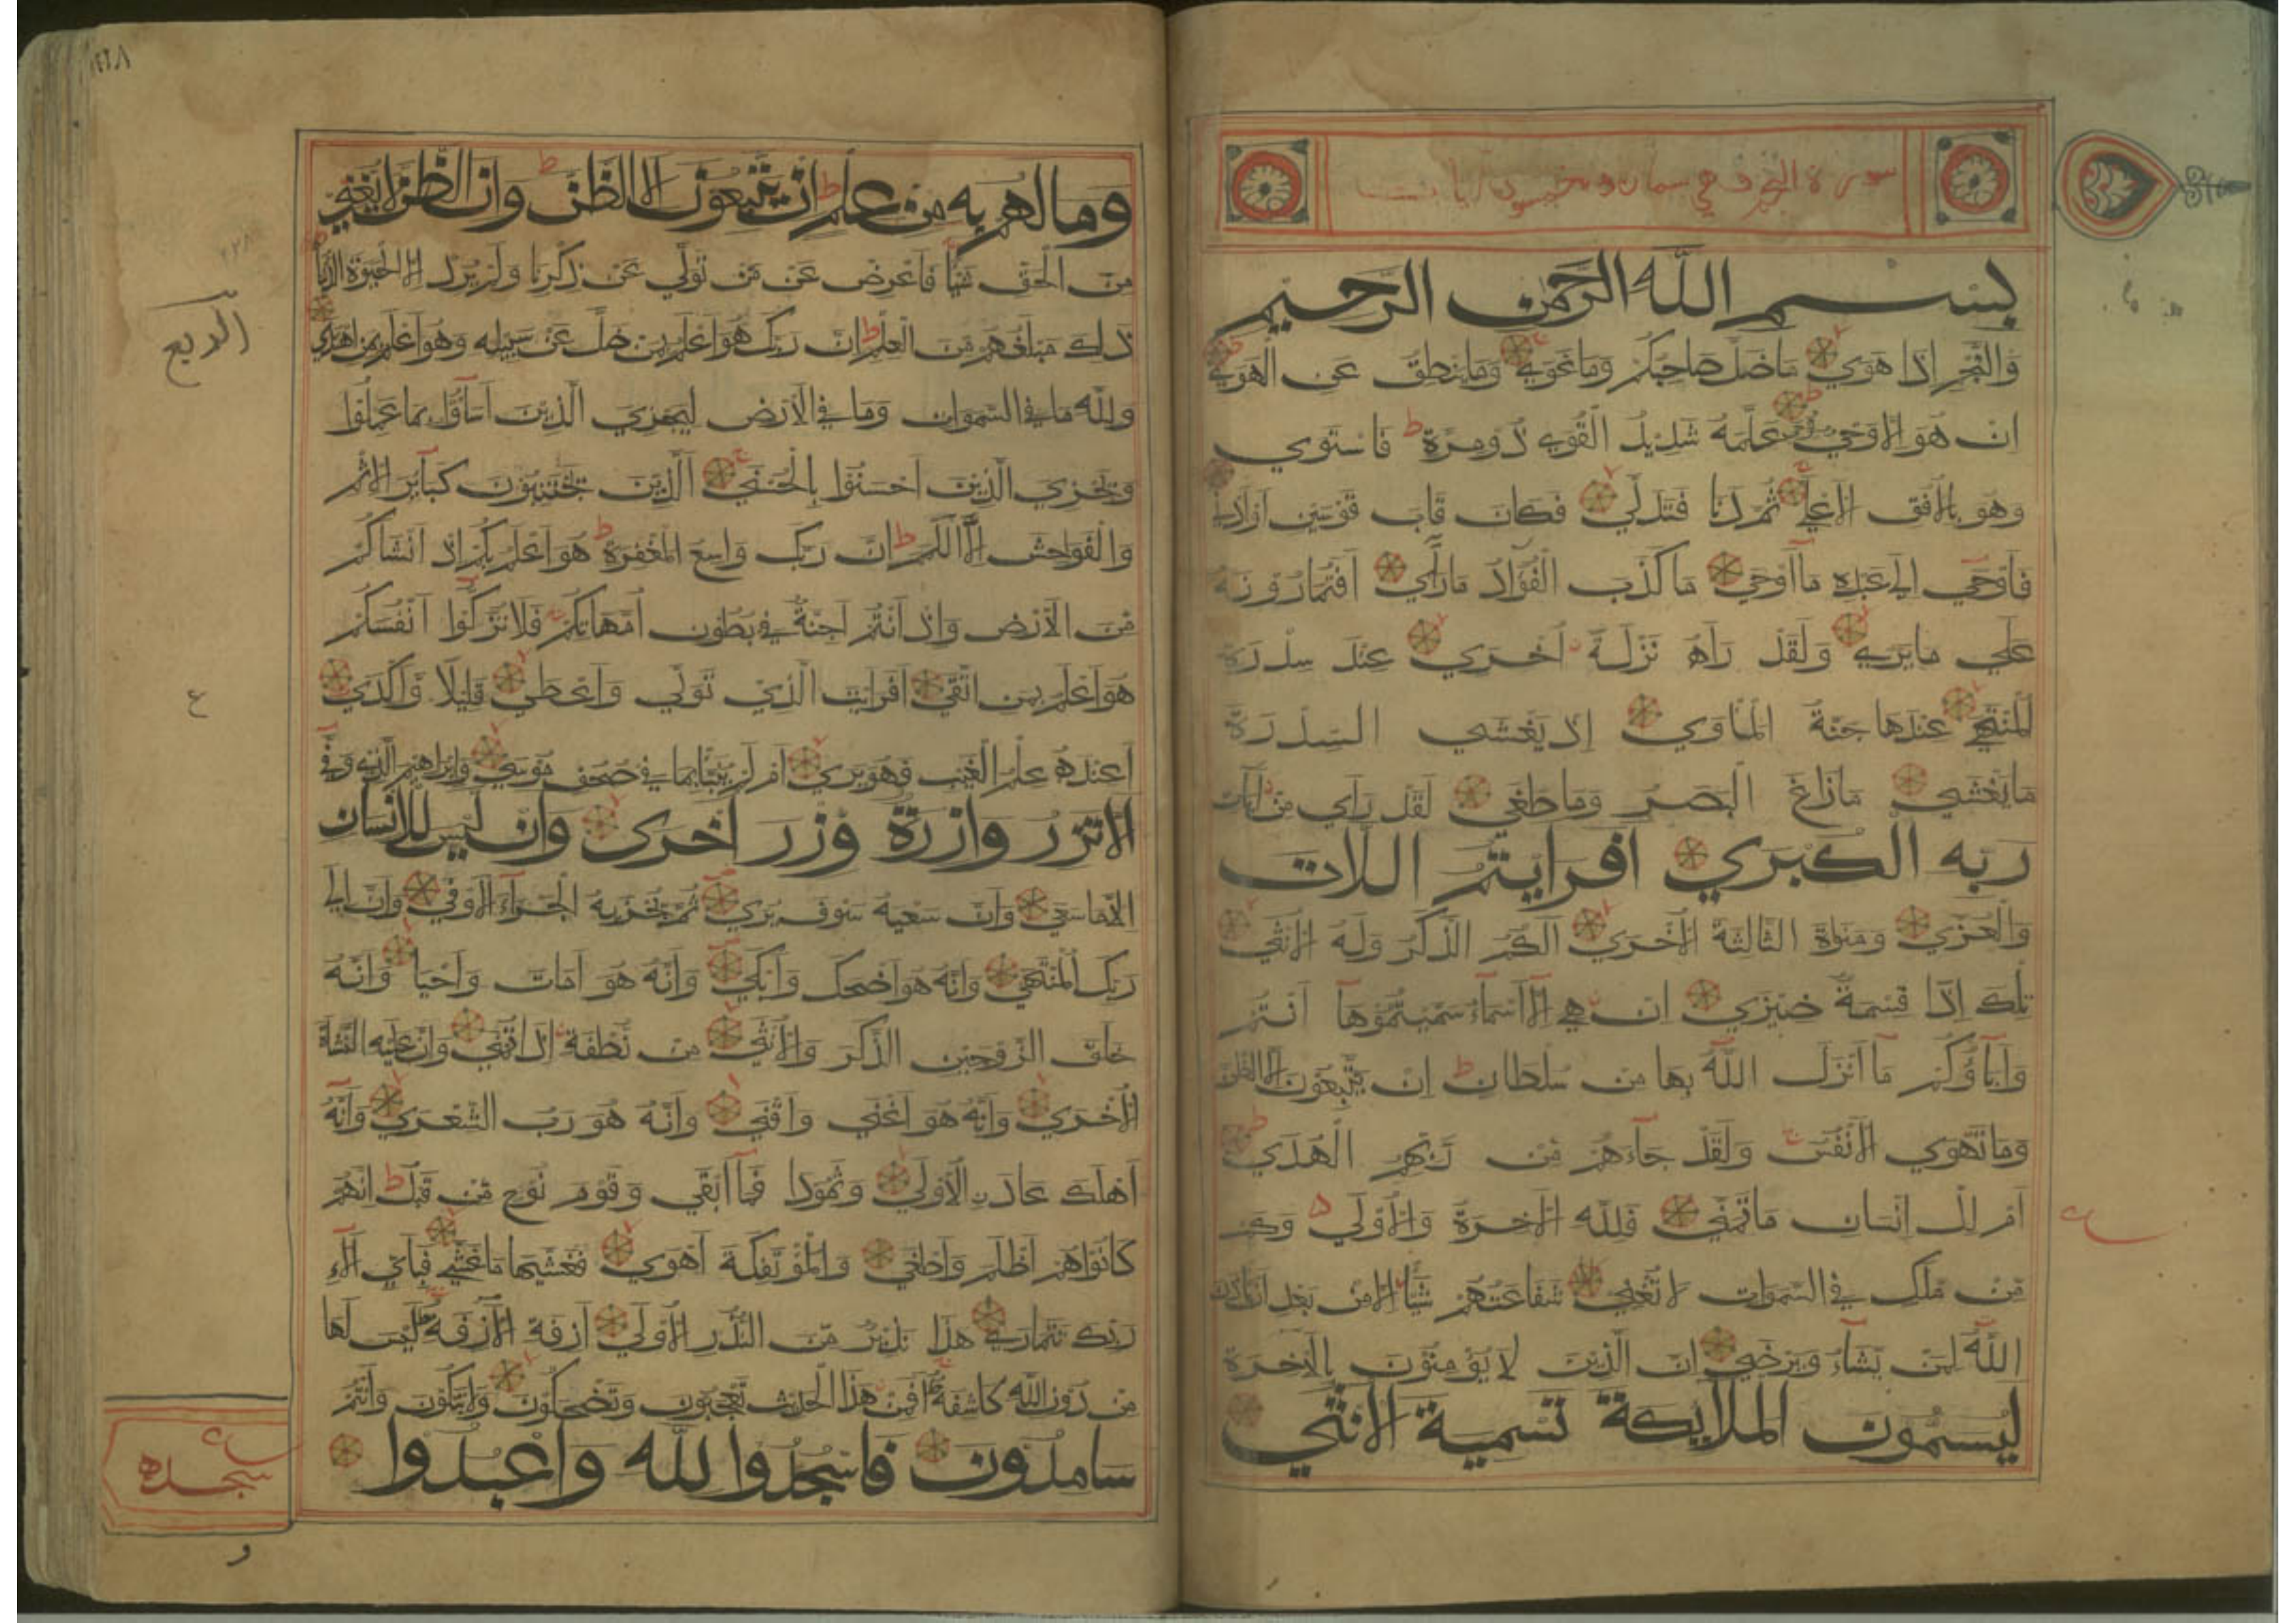 سورة النجم وهي
بسم الله الرحمن الرحيم
والنجم اذا هوي ما ضل صاحبكم وما غوي وما ينطق عن الهوي
ان هو الا وحي يوحي علمه شديد القوي ذو مرة ط فاستوي
وهو بالافق الاعلي ثم دنا فتدلي فكان قاب قوسين او ادني
فاوحي الي عبده ما اوحي ما كذب الفؤاد ما راي افتمارونه
علي ما يري ولقد راه نزلة اخري عند سدرة
المنتهي عندها جنة الماوي اذ يغشي السدرة
ما يغشي ما زاغ البصر وما طغي لقد راي من ايات
ربه الكبري افرايتم اللات
والعزي ومنواة الثالثة الاخري الكم الذكر وله الانثي
تلك اذا قسمة ضيزي ان هي الا اسماء سميتموها انتم
واباؤكم ما انزل الله بها من سلطان ط ان يتبعون الا الظن
وما تهوي الانفس ولقد جاءهم من ربهم الهدي
ام للانسان ما تمني فلله الاخرة والاولي وكم
من ملك في السموات لا تغني شفاعتهم شيئا الا من بعد ان ياذن
الله لمن يشاء ويرضي ان الذين لا يؤمنون بالاخرة
ليسمون الملايكة تسمية الانثي
وما لهم به من علم ط ان يتبعون الا الظن ط وان الظن لا يغني
من الحق شيئا فاعرض عن من تولي عن ذكرنا ولم يرد الا الحيوة الدنيا
ذلك مبلغهم من العلم ط ان ربك هو اعلم بمن ضل عن سبيله وهو اعلم بمن اهتدي
الربع
ولله ما في السموات وما في الارض ليجزي الذين اساؤا بما عملوا
ويجزي الذين احسنوا بالحسني الذين يجتنبون كبائر الاثم
والفواحش الا اللمم ط ان ربك واسع المغفرة ط هو اعلم بكم اذ انشاكم
من الارض واذ انتم اجنة في بطون امهاتكم فلا تزكوا انفسكم
هو اعلم بمن اتقي افرايت الذي تولي واعطي قليلا واكدي
ع
اعنده علم الغيب فهو يري ام لم ينبا بما في صحف موسي وابراهيم الذي وفي
الا تزر وازرة وزر اخري وان ليس للانسان
الا ما سعي وان سعيه سوف يري ثم يجزيه الجزاء الاوفي وان الي
ربك المنتهي وانه هو اضحك وابكي وانه هو امات واحيا وانه
خلق الزوجين الذكر والانثي من نطفة اذا تمني وان عليه النشاة
الاخري وانه هو اغني واقني وانه هو رب الشعري وانه
اهلك عادن الاولي وثمودا فما ابقي وقوم نوح من قبل ط انهم
كانوا هم اظلم واطغي والمؤتفكة اهوي فغشيها ما غشي فباي الاء
ربك تتماري هذا نذير من النذر الاولي ازفة الازفة ليس لها
من دون الله كاشفة افمن هذا الحديث تعجبون وتضحكون ولا تبكون وانتم
سامدون فاسجدوا لله واعبدوا
سجده